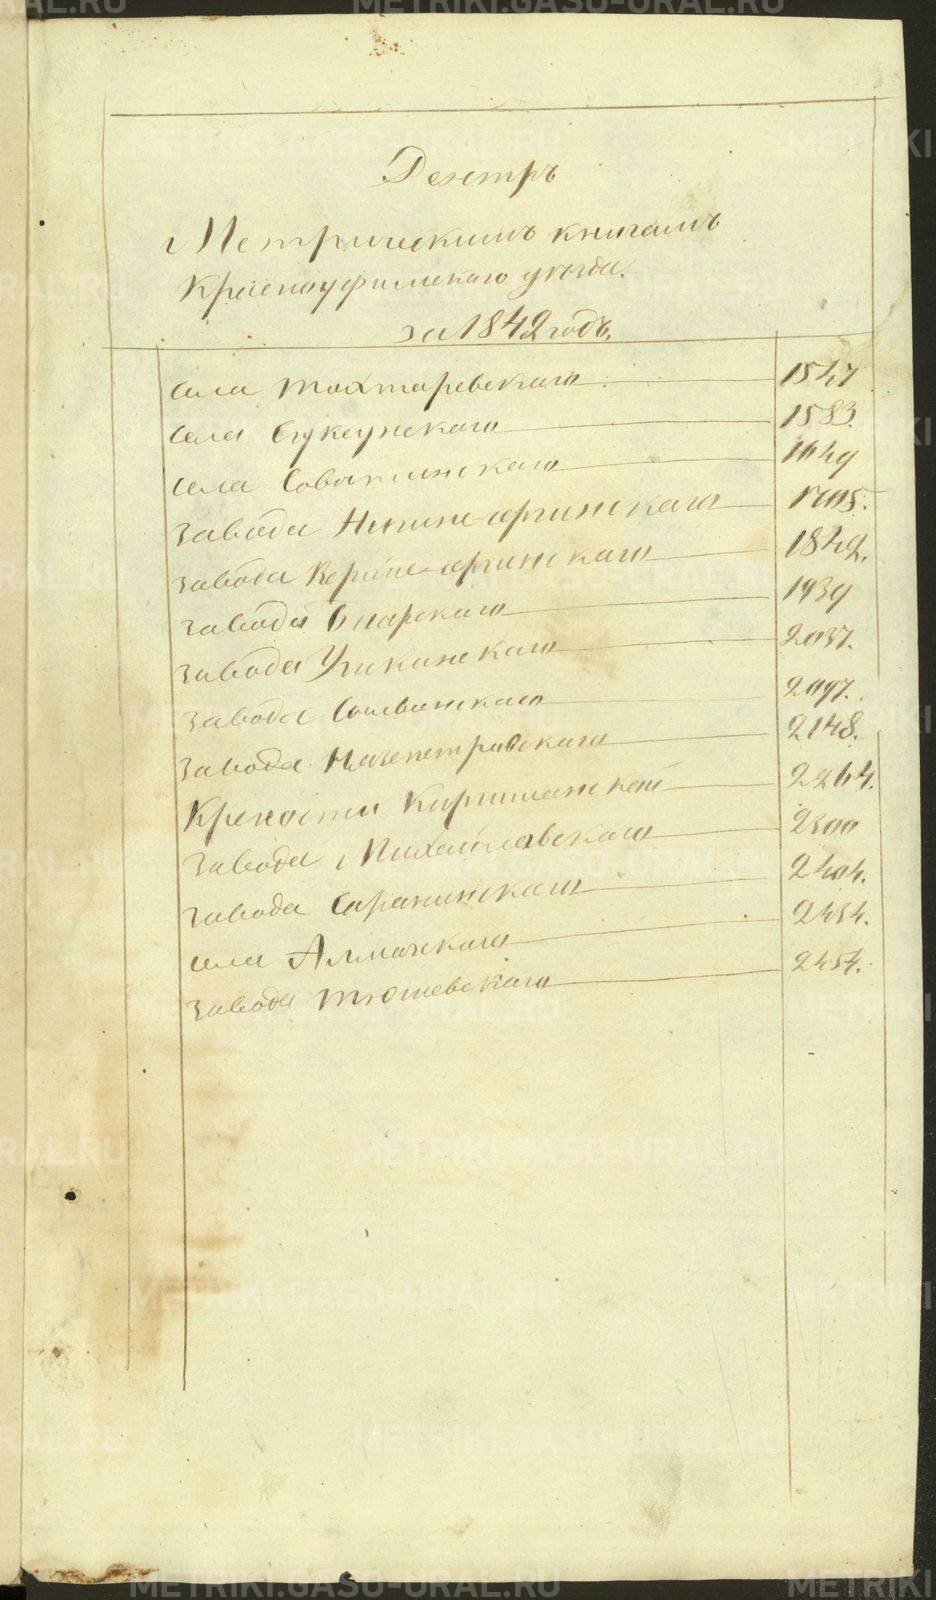 Реэстръ
Метрическимъ книгамъ
Красноуфимскаго уѣзда.
за 1842 годъ.
села Тохтаревскаго 1547
села Суксунскаго 1583.
села Совѣтинскаго 1649
завода Нижне-сергинскаго
завода Верхне-сергинскаго 1842.
завода Бисерскаго 1939
завода Уткинскаго 2037.
завода Сылвинскаго 2097.
завода Нязепетровскаго 2148.
Крепости Киришанской 2264.
завода Михайловскаго 2300
завода Саранинскаго 2404.
села Алмазскаго 2434.
завода Тюшевскаго 2454.
METRIKI.GASO-URAL.RU